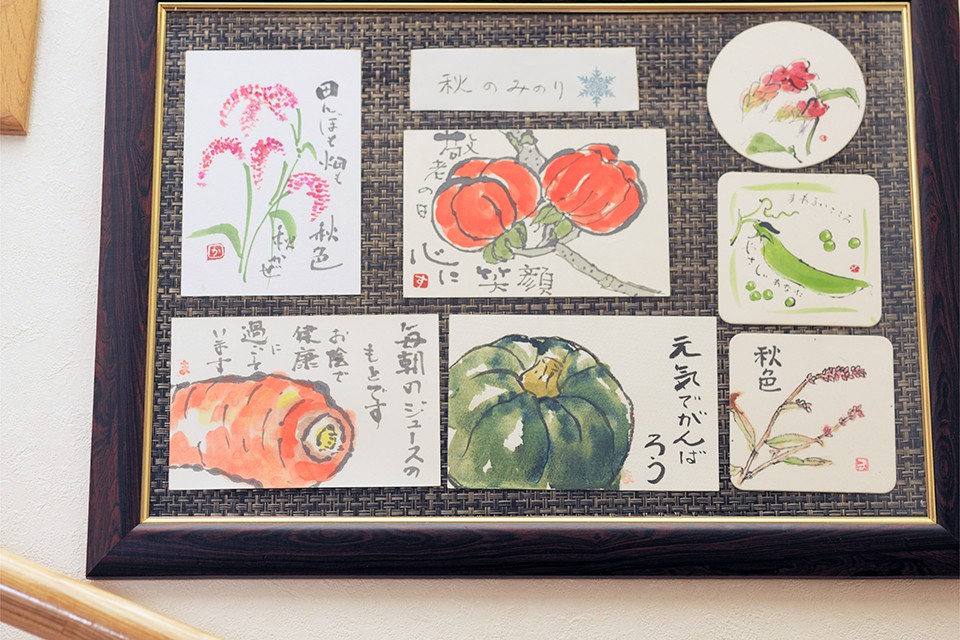 秋のみのり
田んぼも畑も
秋色
秋かぜ
か
敬老の日
心に
笑顔
す
まあるいこころ
毎朝のジュースの
もとです
お陰で
健康
に
います
ま
元気でがんば
ろう
秋色